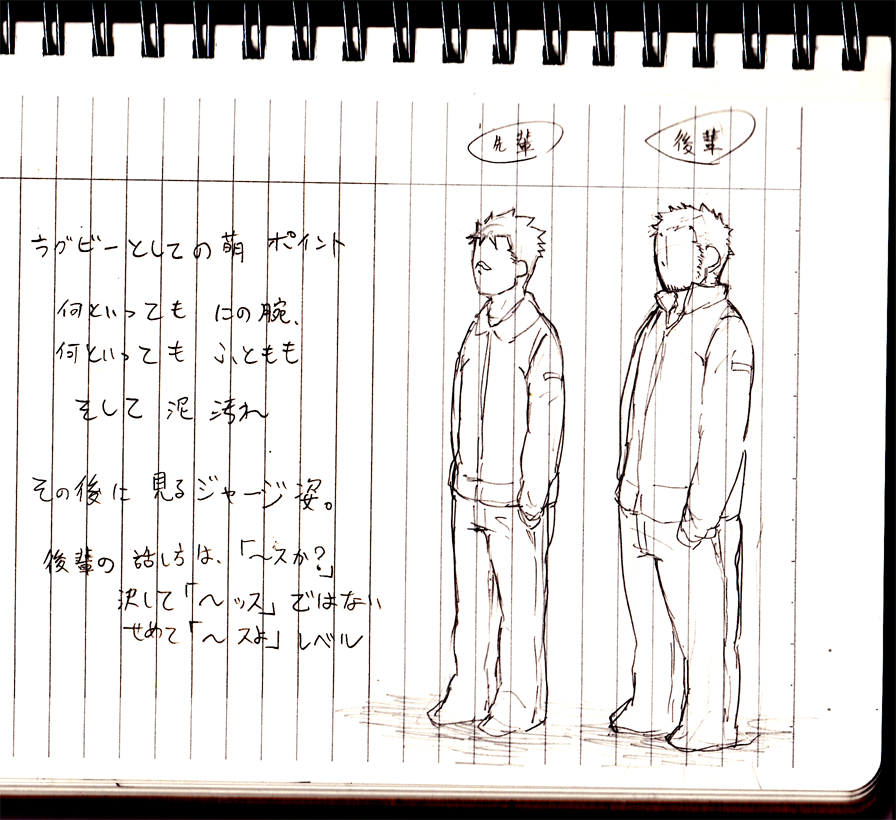 先輩
後輩
ラグビーとしての萌ポイント
何といっても にの腕、
何といっても ふともも
そして 泥 汚れ
その後に 見るジャージ姿。
後輩の 話し方は、「〜スか?」
決して「〜ッス」ではない
せめて「〜スよ」レベル